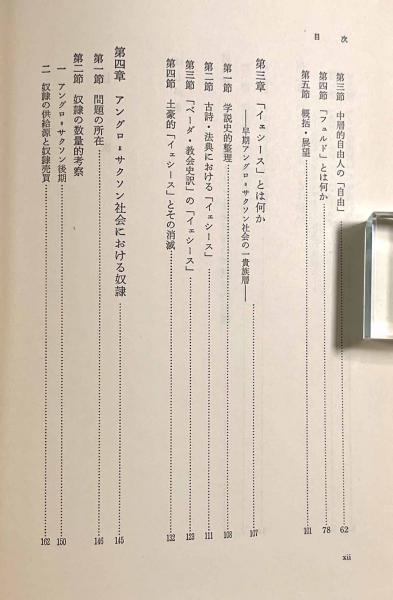 目次
第三節　中層的自由人の「自由」 62
第四節　「フュルド」とは何か 78
第五節　概括・展望 101
第三章　「イェシース」とは何か 107
――早期アングロ＝サクソン社会の一貴族層――
第一節　学説史的整理 108
第二節　古詩・法典における「イェシース」 111
第三節　『ベーダ・教会史訳』の「イェシース」 123
第四節　土豪的「イェシース」とその消滅 132
第四章　アングロ＝サクソン社会における奴隷 145
第一節　問題の所在 146
第二節　奴隷の数量的考察
一　アングロ＝サクソン後期 150
二　奴隷の供給源と奴隷売買 162
xii